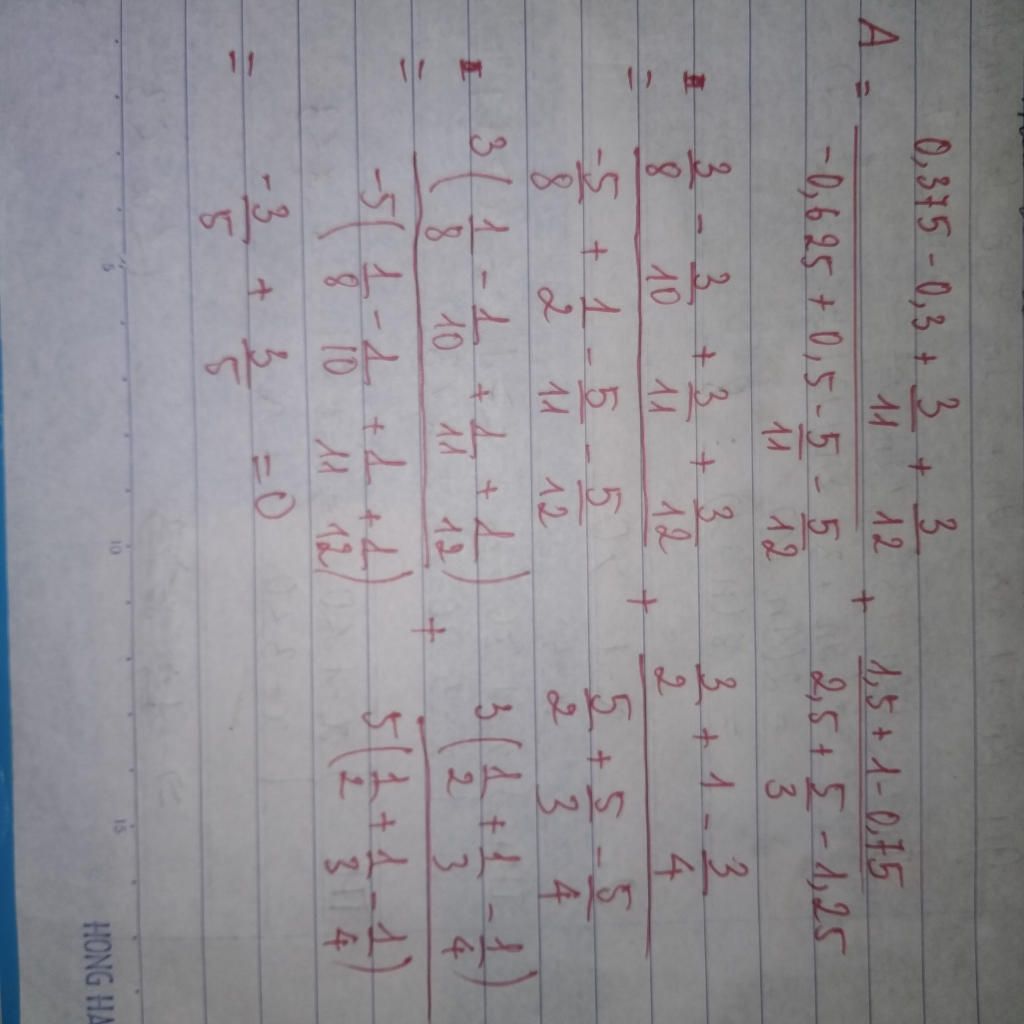 A = (0,375 - 0,3 + 3/11 + 3/12) / (-0,625 + 0,5 - 5/11 - 5/12) + (1,5 + 1 - 0,75) / (2,5 + 5/3 - 1,25)
= (3/8 - 3/10 + 3/11 + 3/12) / (-5/8 + 1/2 - 5/11 - 5/12) + (3/2 + 1 - 3/4) / (5/2 + 5/3 - 5/4)
= 3(1/8 - 1/10 + 1/11 + 1/12) / -5(1/8 - 1/10 + 1/11 + 1/12) + 3(1/2 + 1/3 - 1/4) / 5(1/2 + 1/3 - 1/4)
= -3/5 + 3/5 = 0
5 10 15
HONG HA